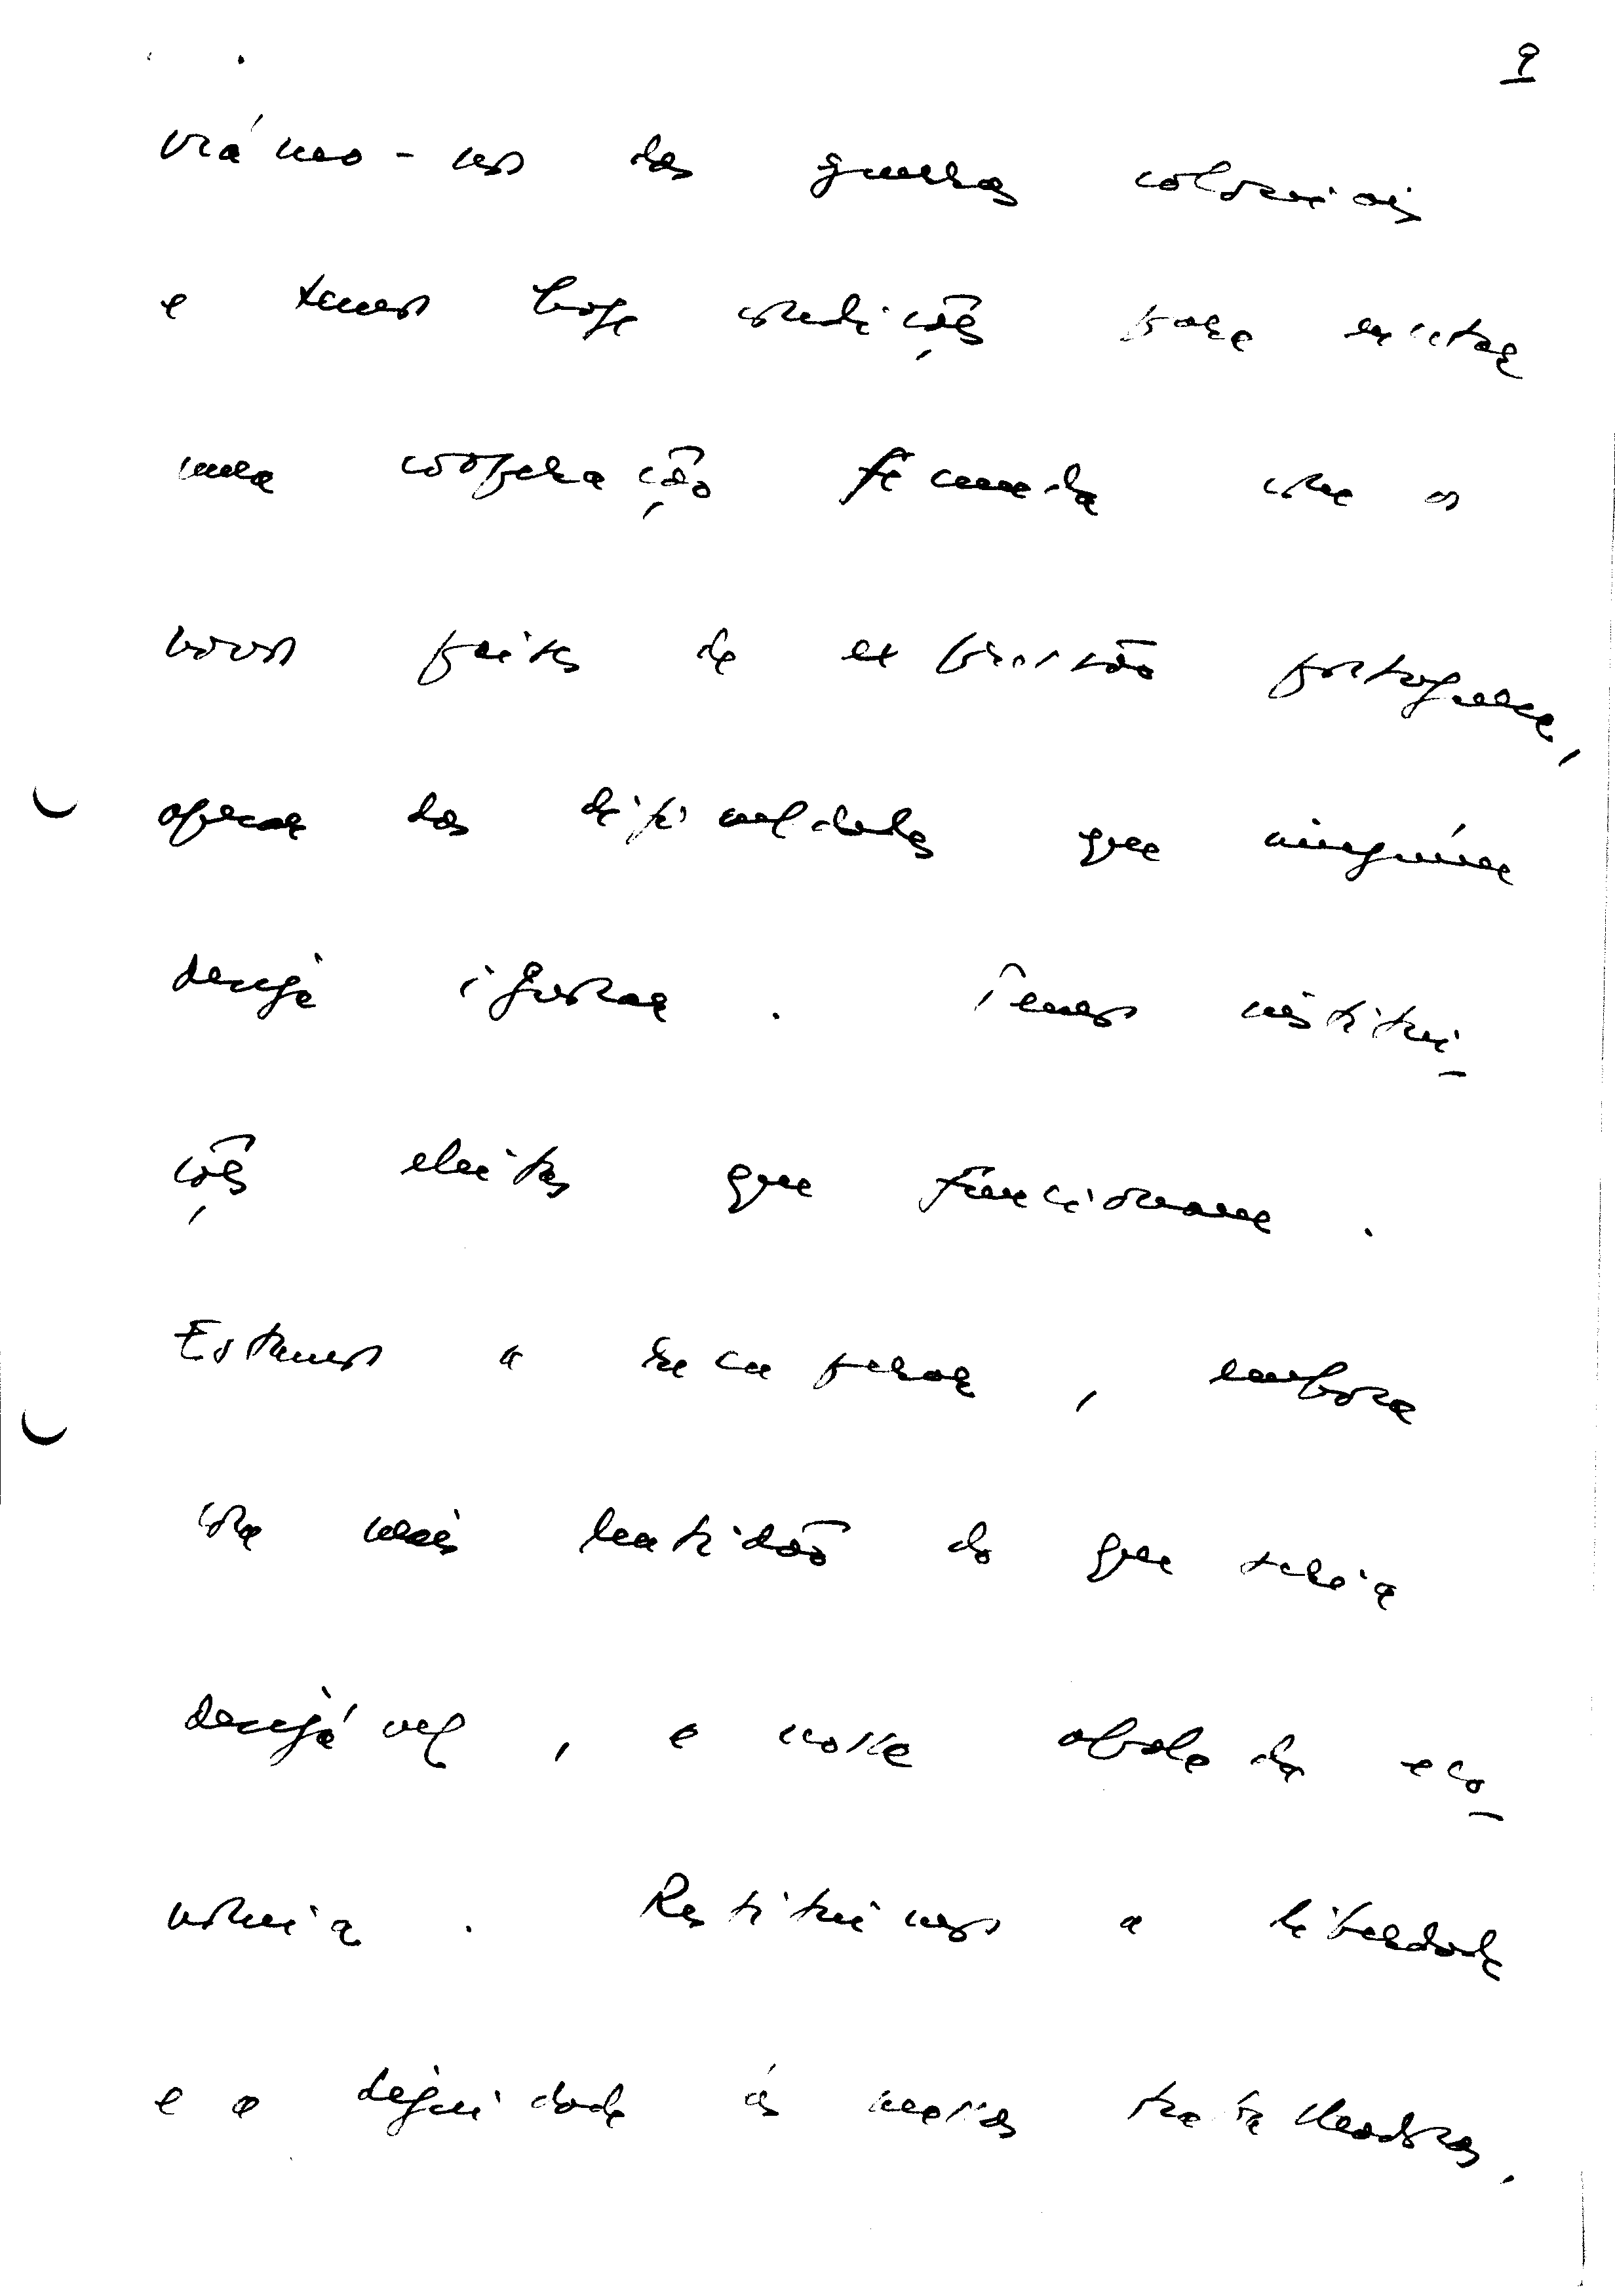 9
vrámo-nos das guerras coloniais
e temos hoje condições para encetar
uma cooperação fecunda com os
novos países de expressão portuguesa,
apesar das dificuldades que ninguém
deseja ignorar. Temos institui-
ções eleitas que funcionam.
Estamos a recuperar, embora
com mais lentidão do que seria
desejável, a nossa abalada eco-
nomia. Restituímos a liberdade
e a dignidade às massas trabalhadoras,